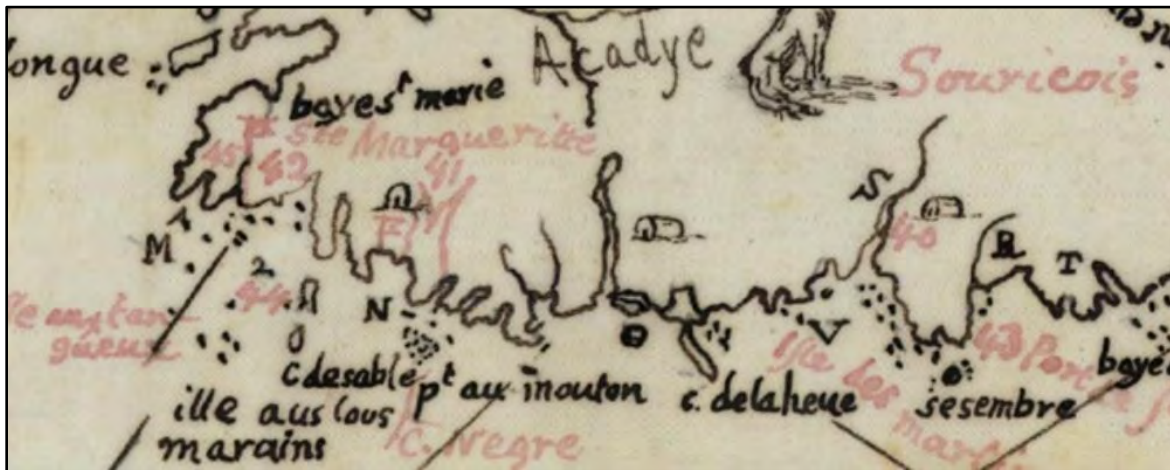 Acadye
Souricois
longue
baye st marie
Ste Margueritte
45
42
41
F
S
40
R
T
M
2
44
N
ille aux tan-
gueux
c desable
pt aux mouton
c. delaheue
V
Isle des
mart
sesembre
43 Port
baye
ille aus lous
marains
C. Negre